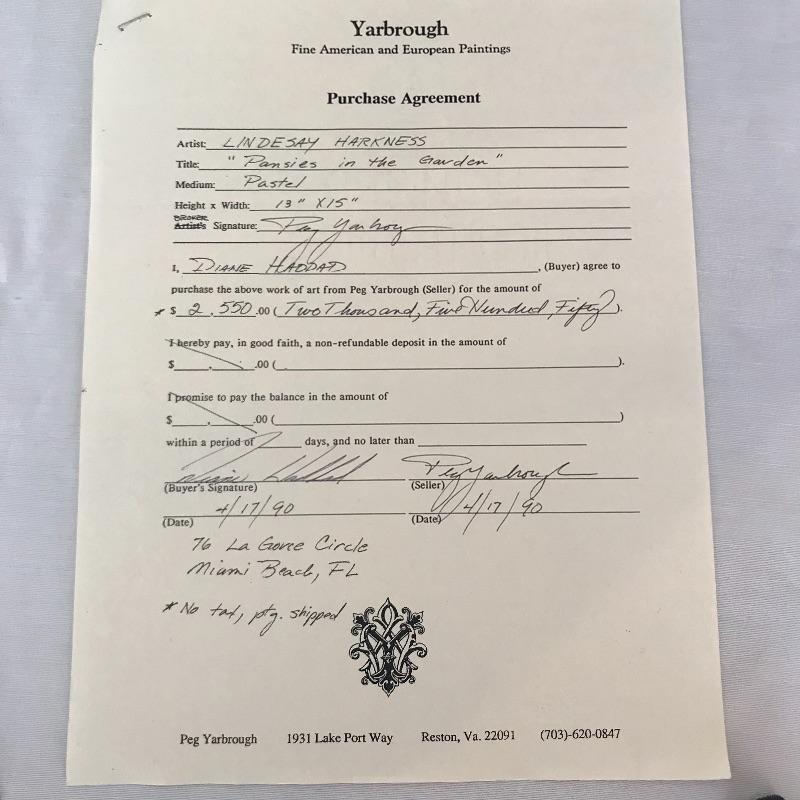 Yarbrough
Fine American and European Paintings
Purchase Agreement
Artist: LINDESAY HARKNESS
Title: "Pansies in the Garden"
Medium: Pastel
Height x Width: 13" X 15"
BROKER
Artist's Signature: Peg Yarbroug
I, DIANE HADDAD, (Buyer) agree to
purchase the above work of art from Peg Yarbrough (Seller) for the amount of
* $ 2,550.00 (Two Thousand, Five Hundred, Fifty).
I hereby pay, in good faith, a non-refundable deposit in the amount of
$ . .00 ( ).
I promise to pay the balance in the amount of
$ . .00 ( )
within a period of days, and no later than
Diane Haddad Peg Yarbrough
(Buyer's Signature) (Seller)
4/17/90 4/17/90
(Date) (Date)
76 La Gorce Circle
Miami Beach, FL
* No tax, ptg. shipped
Peg Yarbrough 1931 Lake Port Way Reston, Va. 22091 (703)-620-0847